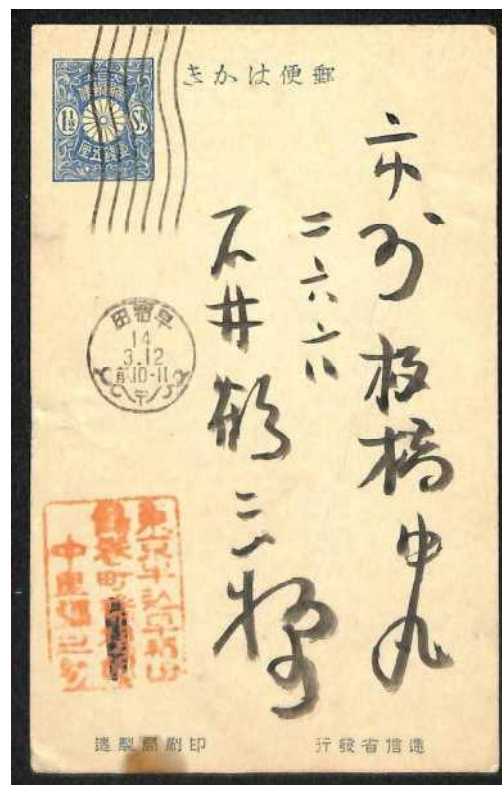 郵便はかき
1½ Sn
壹錢五厘
市外板橋中丸
二六六
石井鶴三様
早稲田
14
3.12
前10-11
東京牛込早稲田
鶴巻町
逓信省發行
印刷局製造